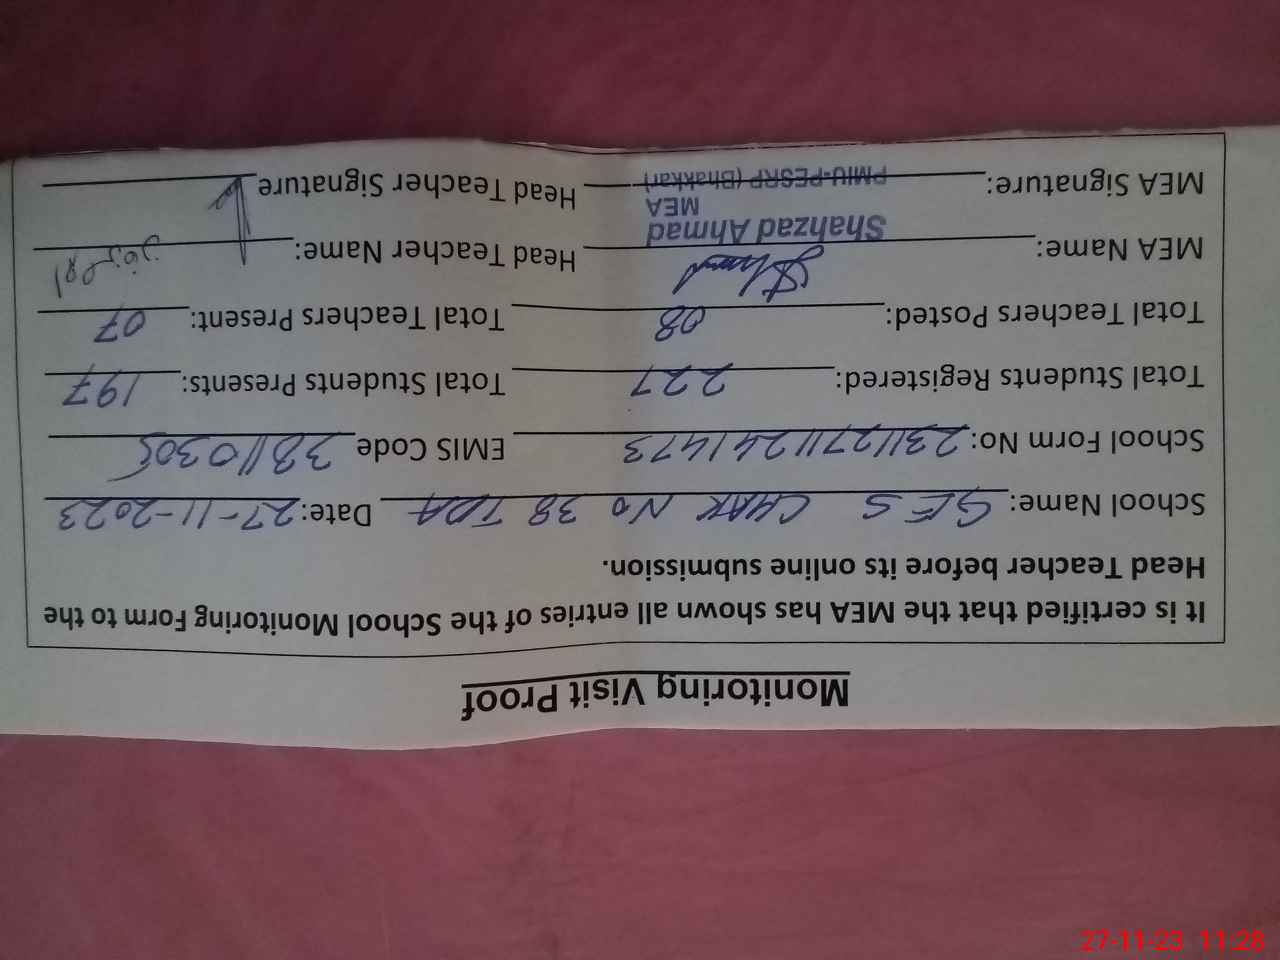 Monitoring Visit Proof
It is certified that the MEA has shown all entries of the School Monitoring Form to the
Head Teacher before its online submission.
School Name: GES CHAK NO 38 TDA Date: 27-11-2023
School Form No: 23112711241473 EMIS Code 38110305
Total Students Registered: 227 Total Students Presents: 197
Total Teachers Posted: 08 Total Teachers Present: 07
MEA Name: Shahzad Ahmad Head Teacher Name:
MEA
MEA Signature: PMIU-PESRP (Bhakkar) Head Teacher Signature
27-11-23 11:28